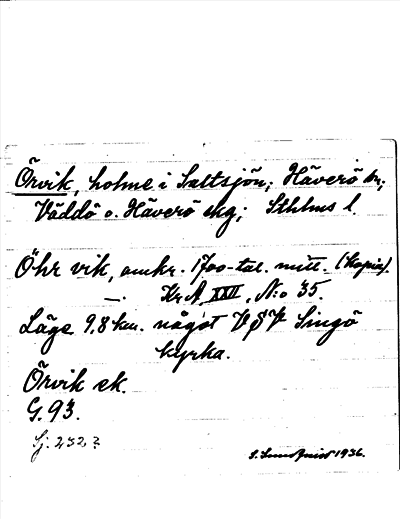 Örvik, holme i Saltsjön; Häverö sn;
Väddö o. Häverö skg; Sthlms l.
Öhr vik, omkr. 1700-tal. mitt. (Kopia).
— Kr A, XXII, N:o 35.
Läge 9,8 km. något VSV Singö
kyrka.
Örvik ek.
G. 93.
Sj. 232?
1936.